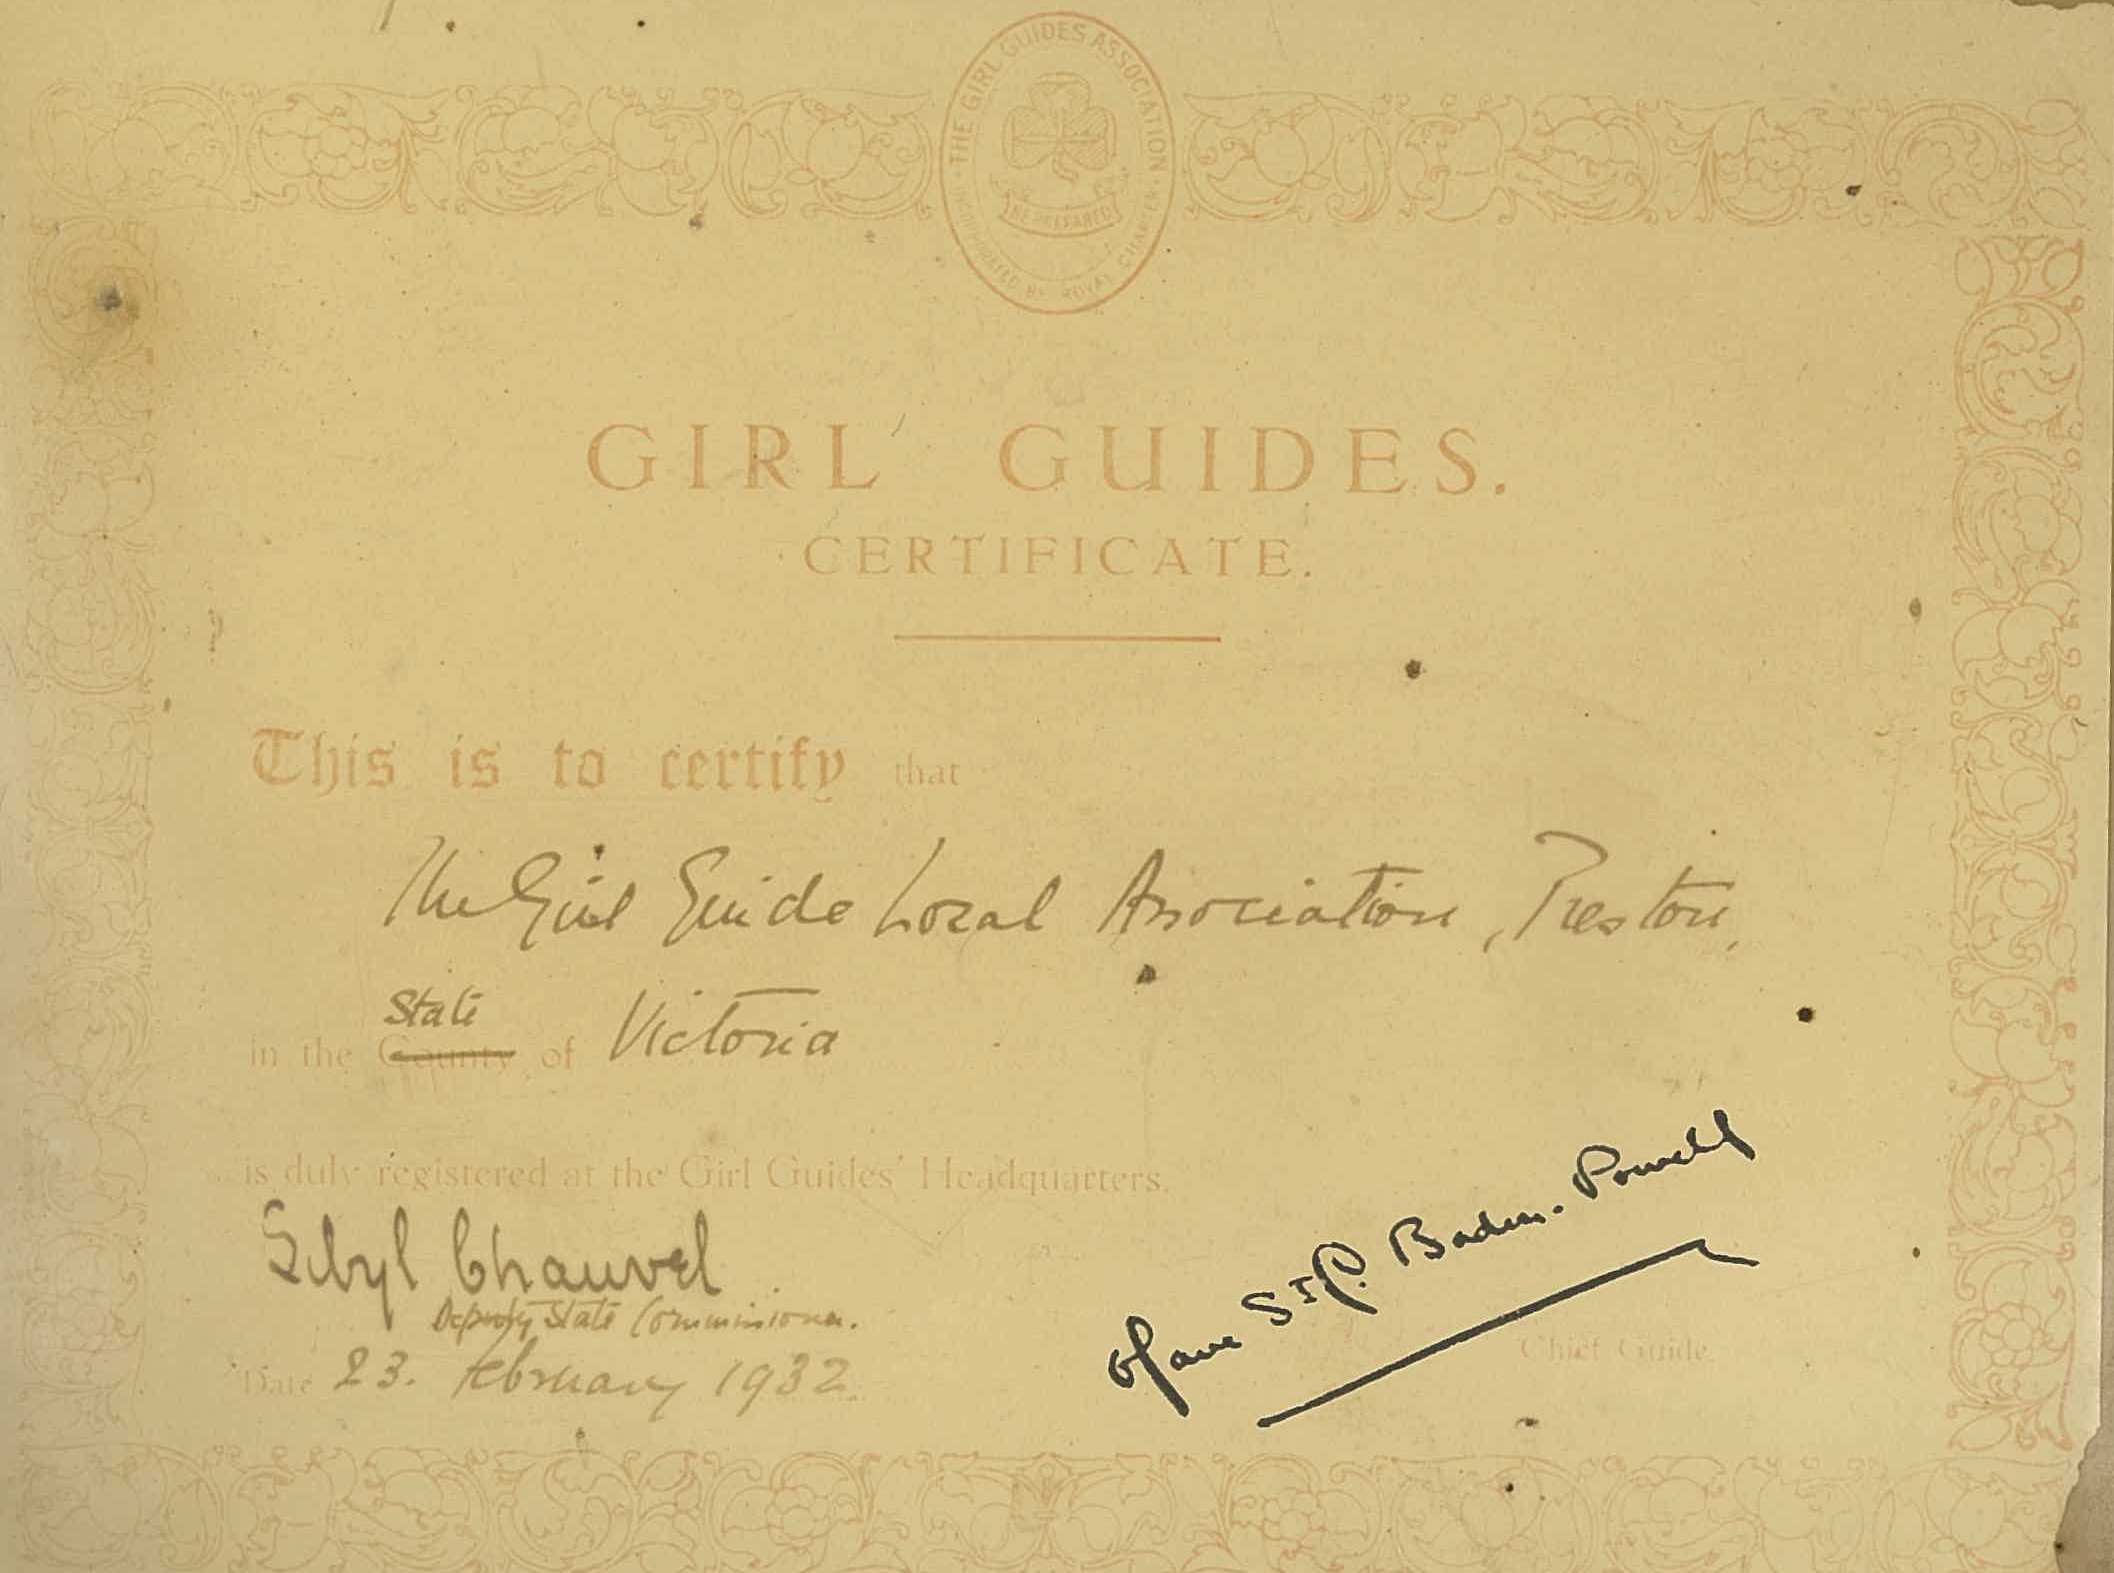 THE GIRL GUIDES ASSOCIATION
INCORPORATED BY ROYAL CHARTER
BE PREPARED
GIRL GUIDES.
CERTIFICATE.
This is to certify that
The Girl Guide Local Association, Preston,
State
in the County of Victoria
is duly registered at the Girl Guides' Headquarters.
Sibyl Chauvel
Deputy State Commissioner.
Olave St. P. Baden-Powell
Chief Guide.
Date 23. February 1932.